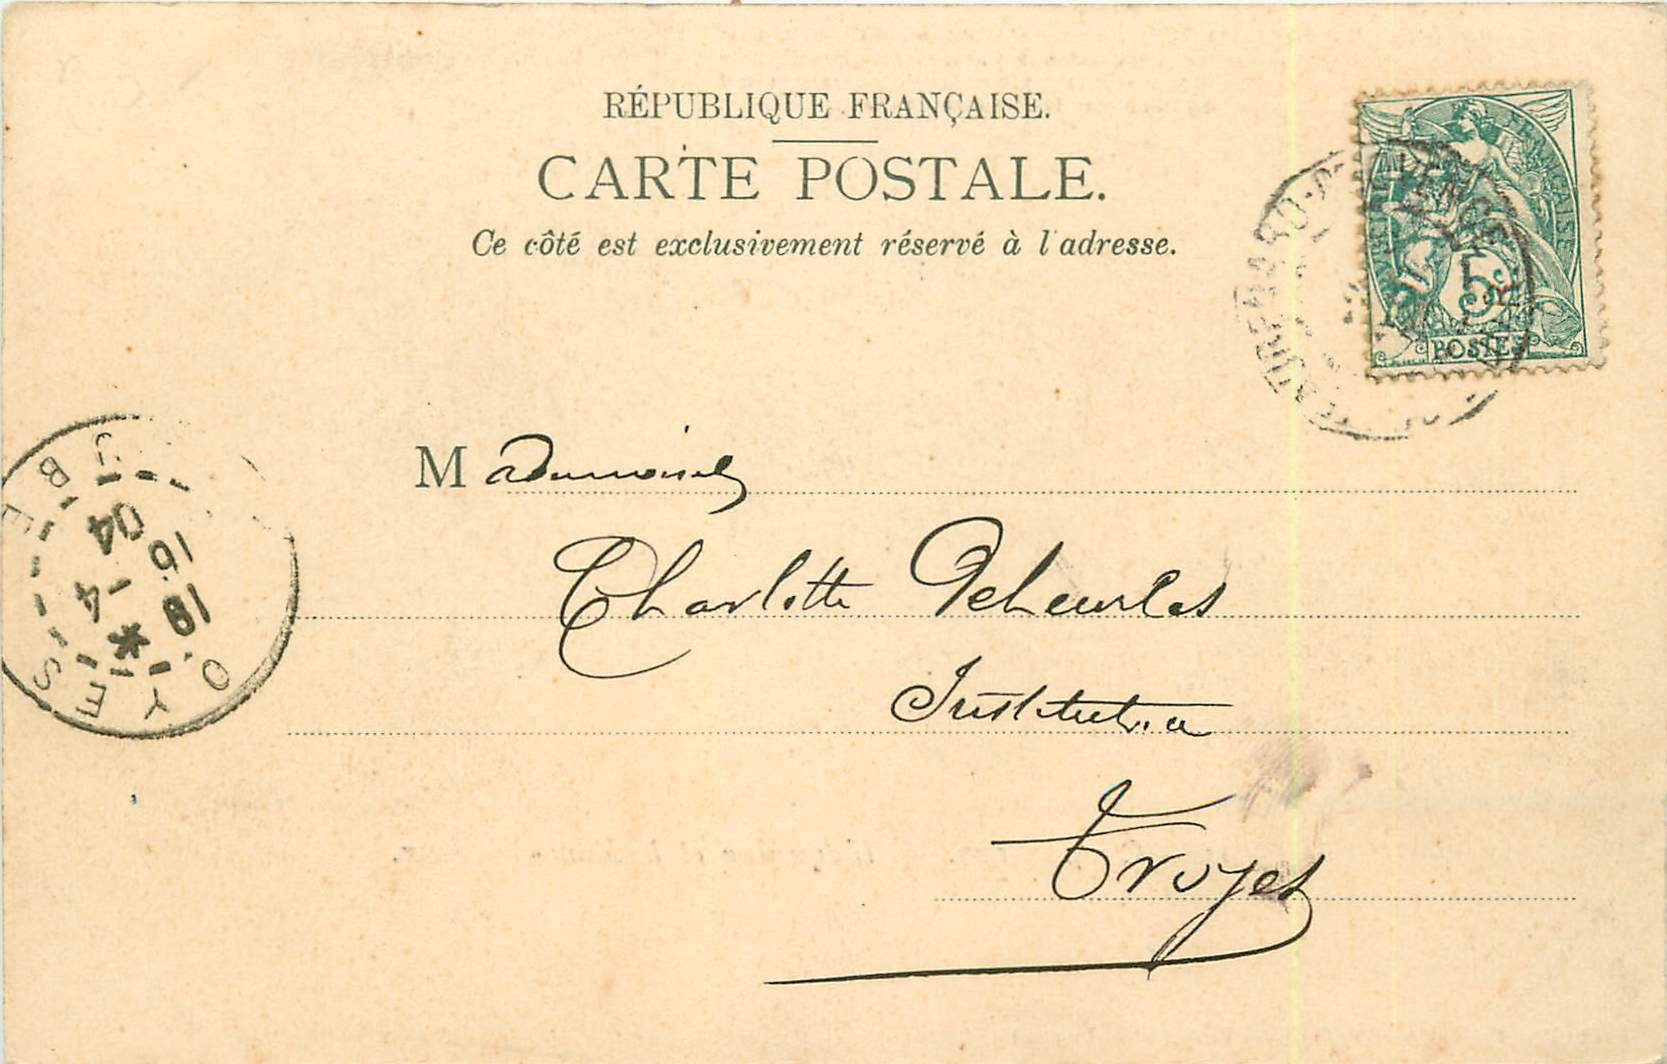 RÉPUBLIQUE FRANÇAISE.
CARTE POSTALE.
Ce côté est exclusivement réservé à l'adresse.
RÉPUBLIQUE FRANÇAISE
5
POSTES
Mademoiselle
Charlotte Deheurles
Institutrice
Troyes
TROYES
AUBE
19 *
15 -4
04